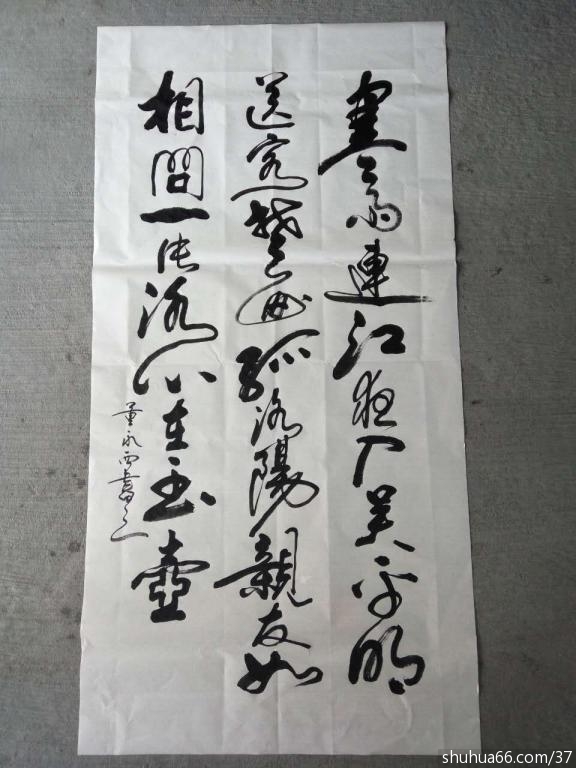 寒雨連江夜入吳平明
送客楚山孤洛陽親友如
相問一片冰心在玉壺
董永西書之
shuhua66.com/37